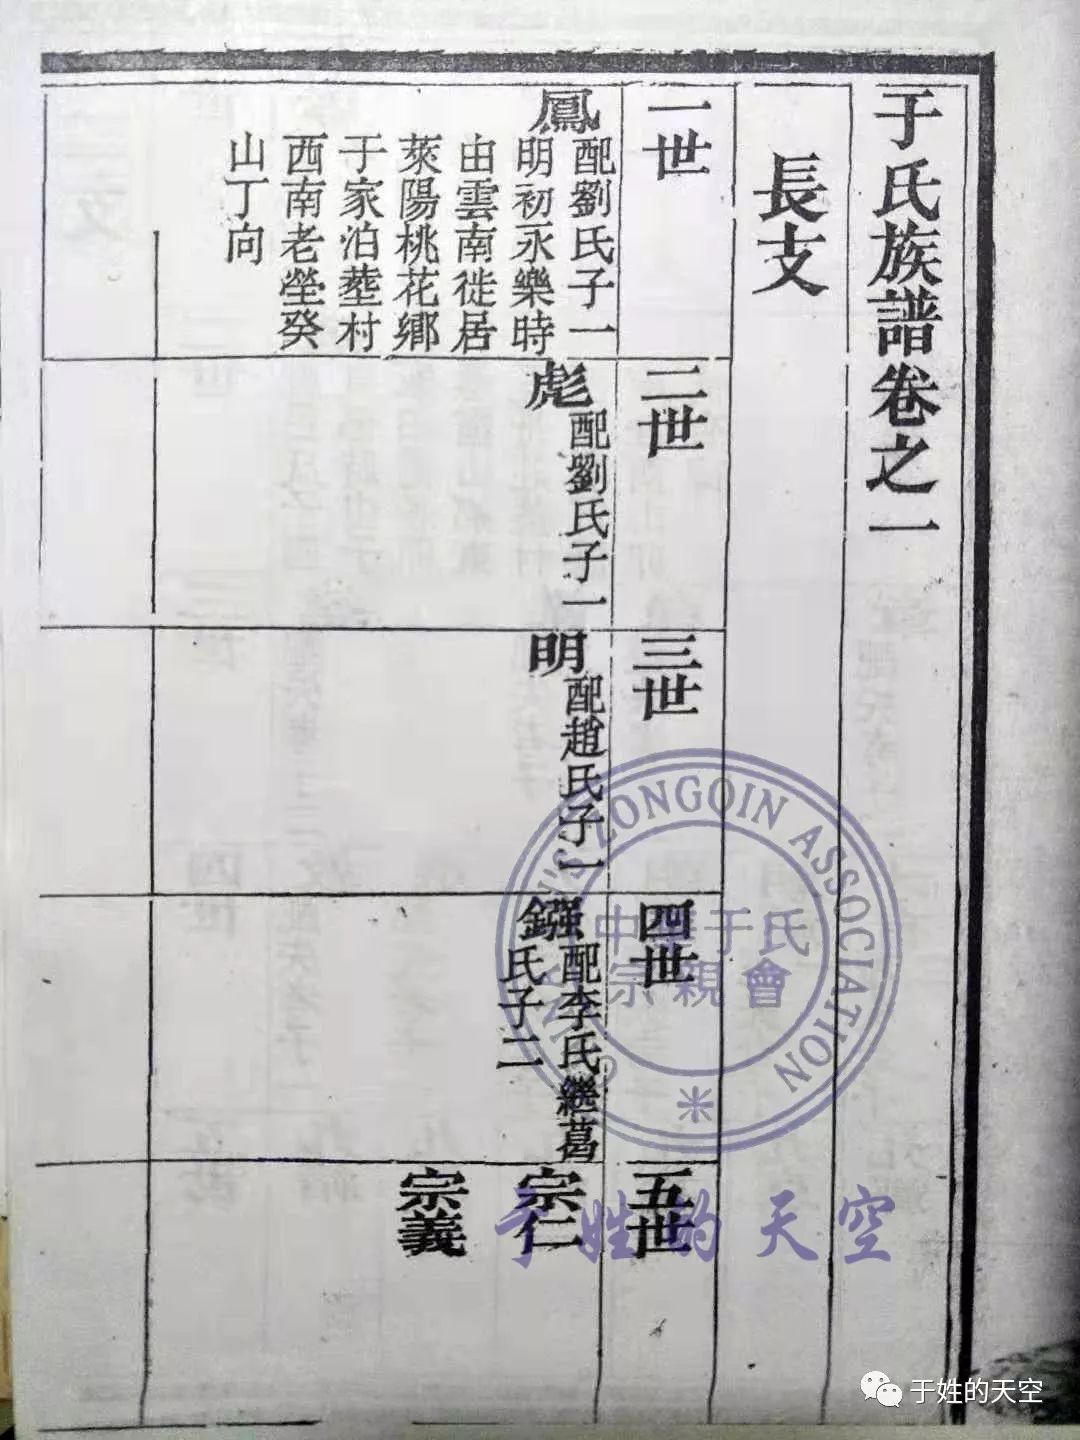 于氏族譜卷之一
長支
一世
鳳
配劉氏子一
明初永樂時
由雲南徙居
萊陽桃花鄉
于家泊塟村
西南老塋癸
山丁向
二世
彪
配劉氏子一
三世
明
配趙氏子一
四世
鏹
配李氏繼葛
氏子二
五世
宗仁
宗義
ZONGQIN ASSOCIATION
中華于氏
宗親會
于姓的天空
于姓的天空